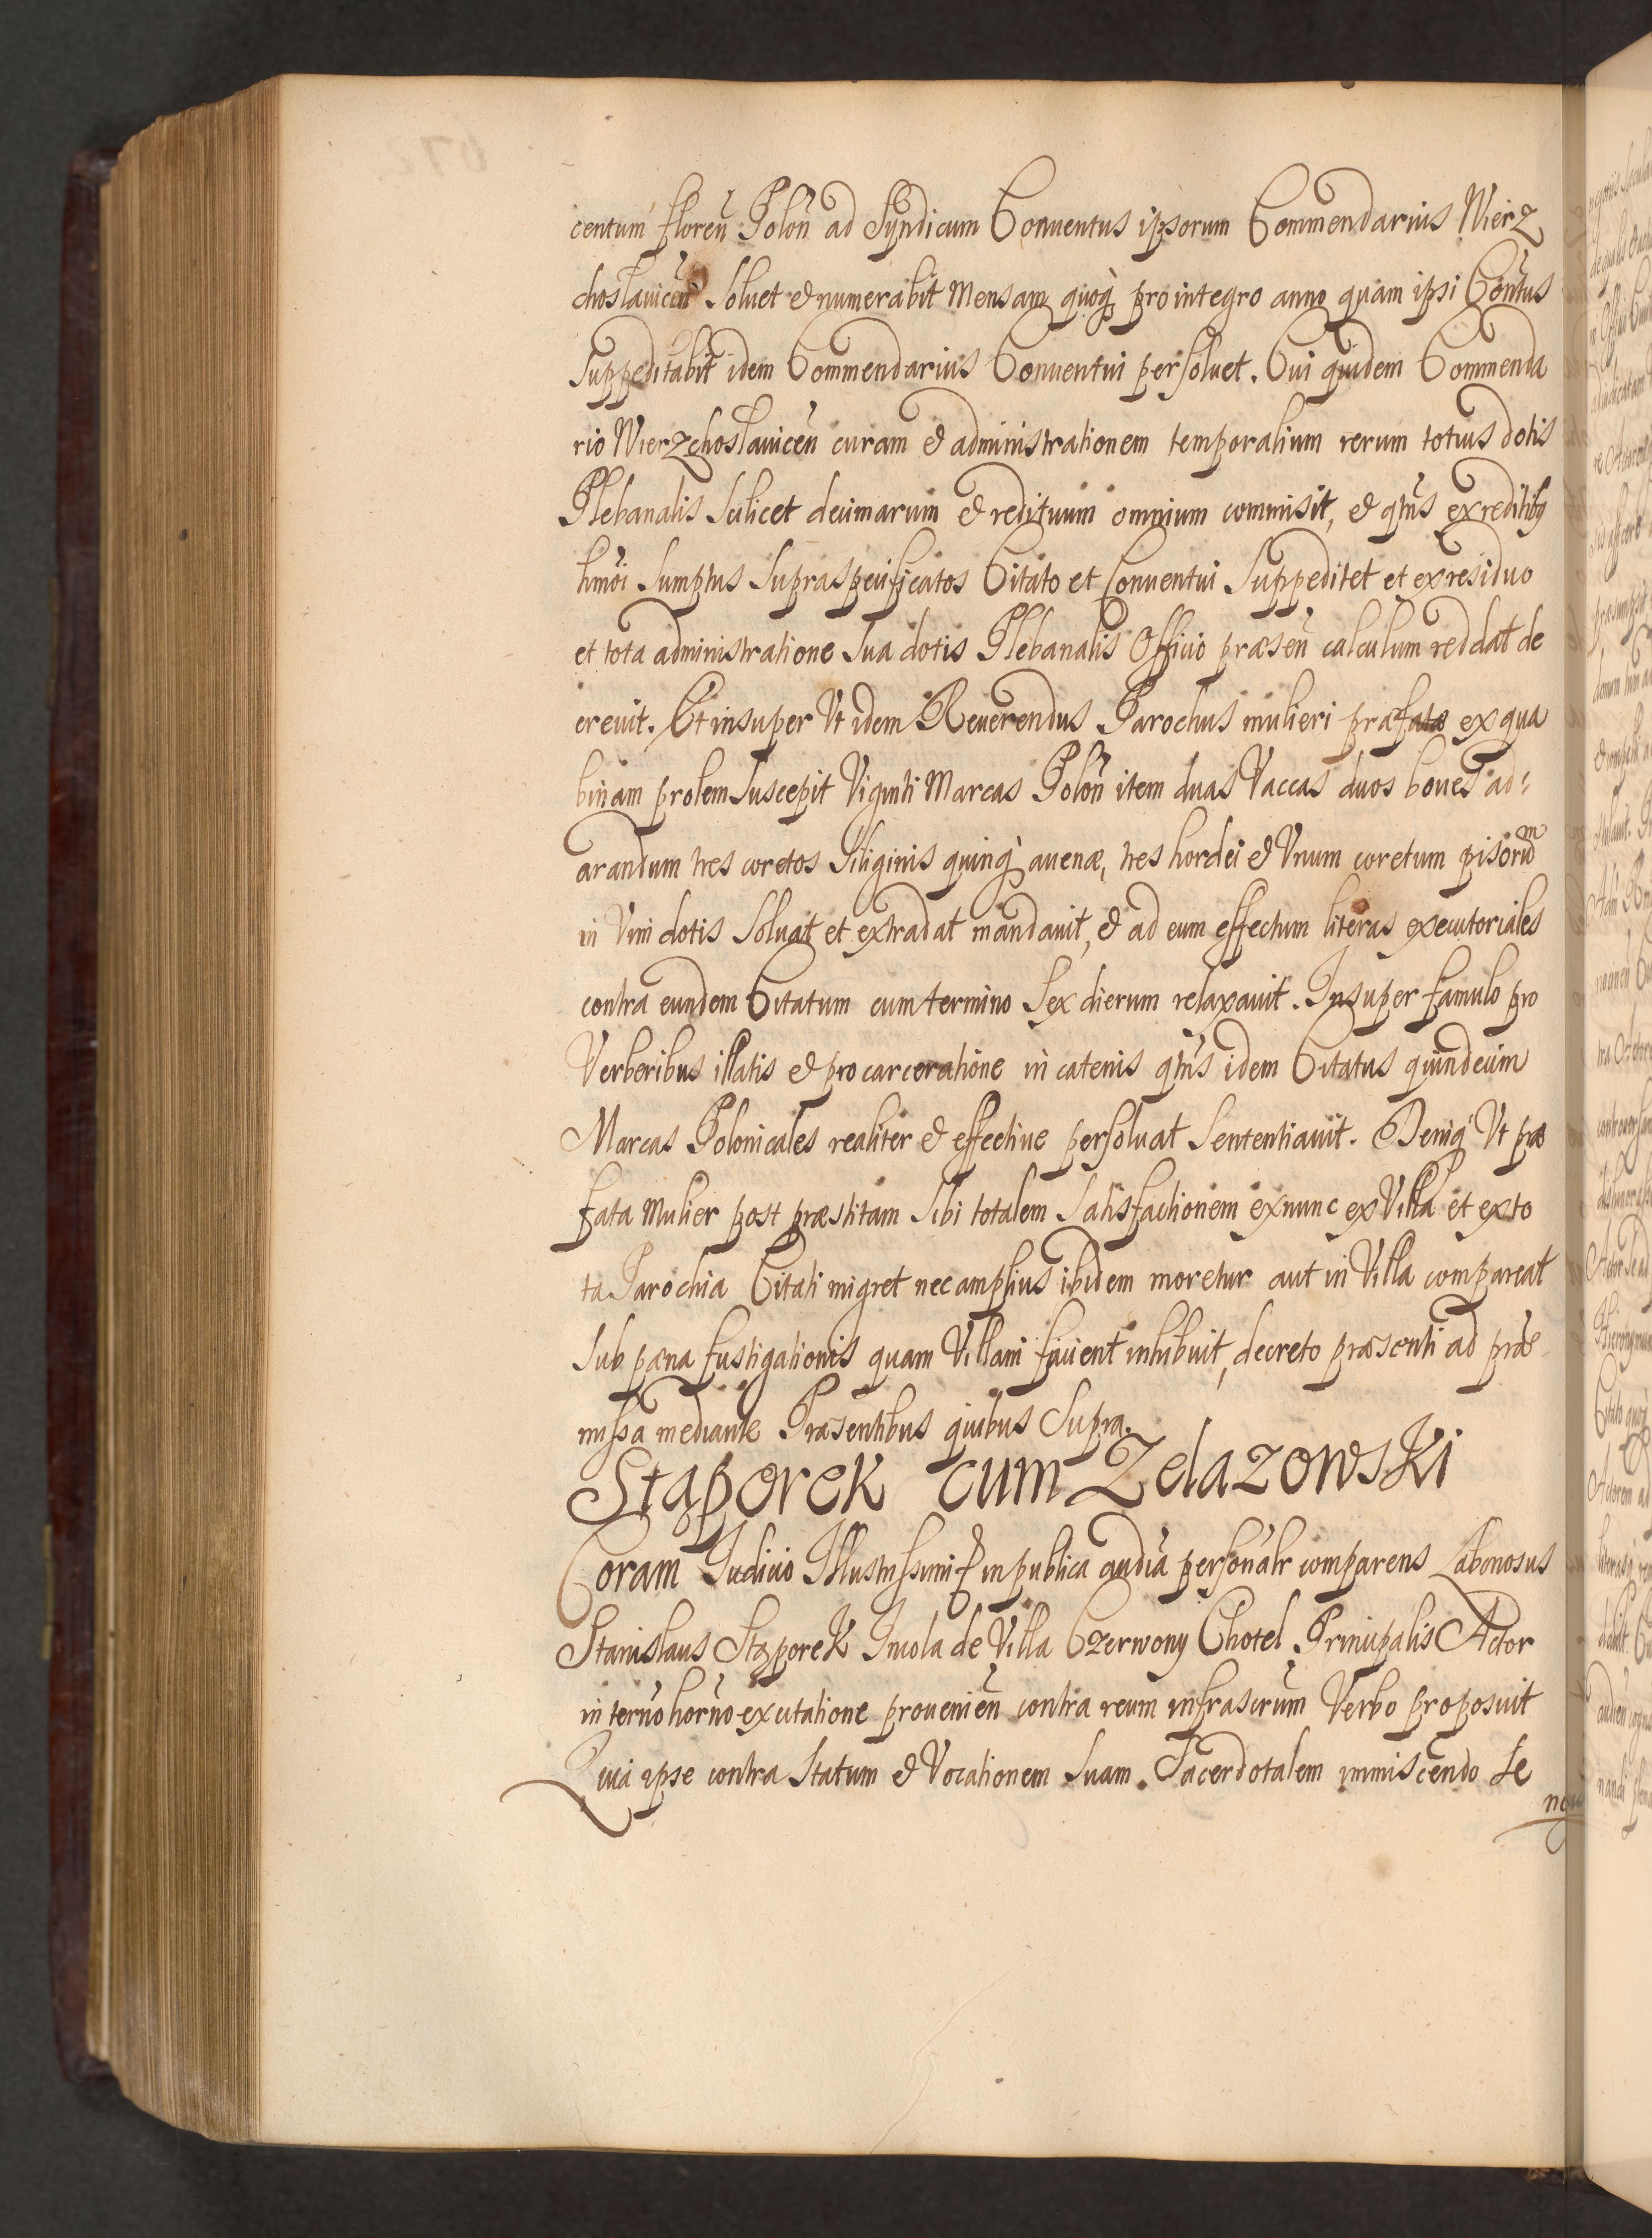 centum floreñ Poloñ ad Syndicum Conuentus ipsorum Commendarius Wierz
choslauiceñ Soluet et numerabit Mensam quoq̀ pro integro anno quam ipsi Con̄tus
Suppeditabit idem Commendarius Conuentui persoluet. Cui quidem Commenda
rio Wierzchoslauiceñ curam et administrationem temporalium rerum totius dotis
Plebanalis Scilicet decimarum et redituum omnium commisit, et qtn̄s ex reditibq
hm̄oi Sumptus Supraspecificatos Citato et Conuentui Suppeditet et ex residuo
et tota administratione Sua dotis Plebanalis Officio præseñ calculum reddat de
creuit. Et insuper Vt idem Reuerendus Parochus mulieri præfatæ ex qua
binam prolem Suscepit Viginti Marcas Poloñ item duas Vaccas duos boues ad:
arandum tres coretos Siliginis quinq̀ auenæ, tres hordei et Vnum coretum pisorum
in Vim dotis Soluat et extradat mandauit, et ad eum effectum literas executoriales
contra eundem Citatum cum termino Sex dierum relaxauit. Insuper famulo pro
Verberibus illatis et pro carceratione in catenis qtn̄s idem Citatus quindecim
Marcas Polonicales realiter et effectiue persoluat Sententiauit. Deniq̀ Vt præ
fata Mulier post præstitam Sibi totalem Satisfactionem ex nunc ex Villa et ex to
ta Parochia Citati migret nec amplius ibidem moretur aut in Villa compareat
Sub pæna fustigationis quam Villani facient inhibuit, decreto præsenti ad præ
missa mediante Præsentibus quibus Supra.
Stąporek cum Zelazowski
Coram Iudicio Illustrissimi in publica audīa personālr comparens Laboriosus
Stanislaus Stąporek Incola de Villa Czerwony Chotel Principalis Actor
in tern̄o horn̄o ex citatione prouenieñ contra reum infrascr̄um Verbo proposuit
Quia ipse contra Statum et Vocationem Suam Sacerdotalem immiscendo Se